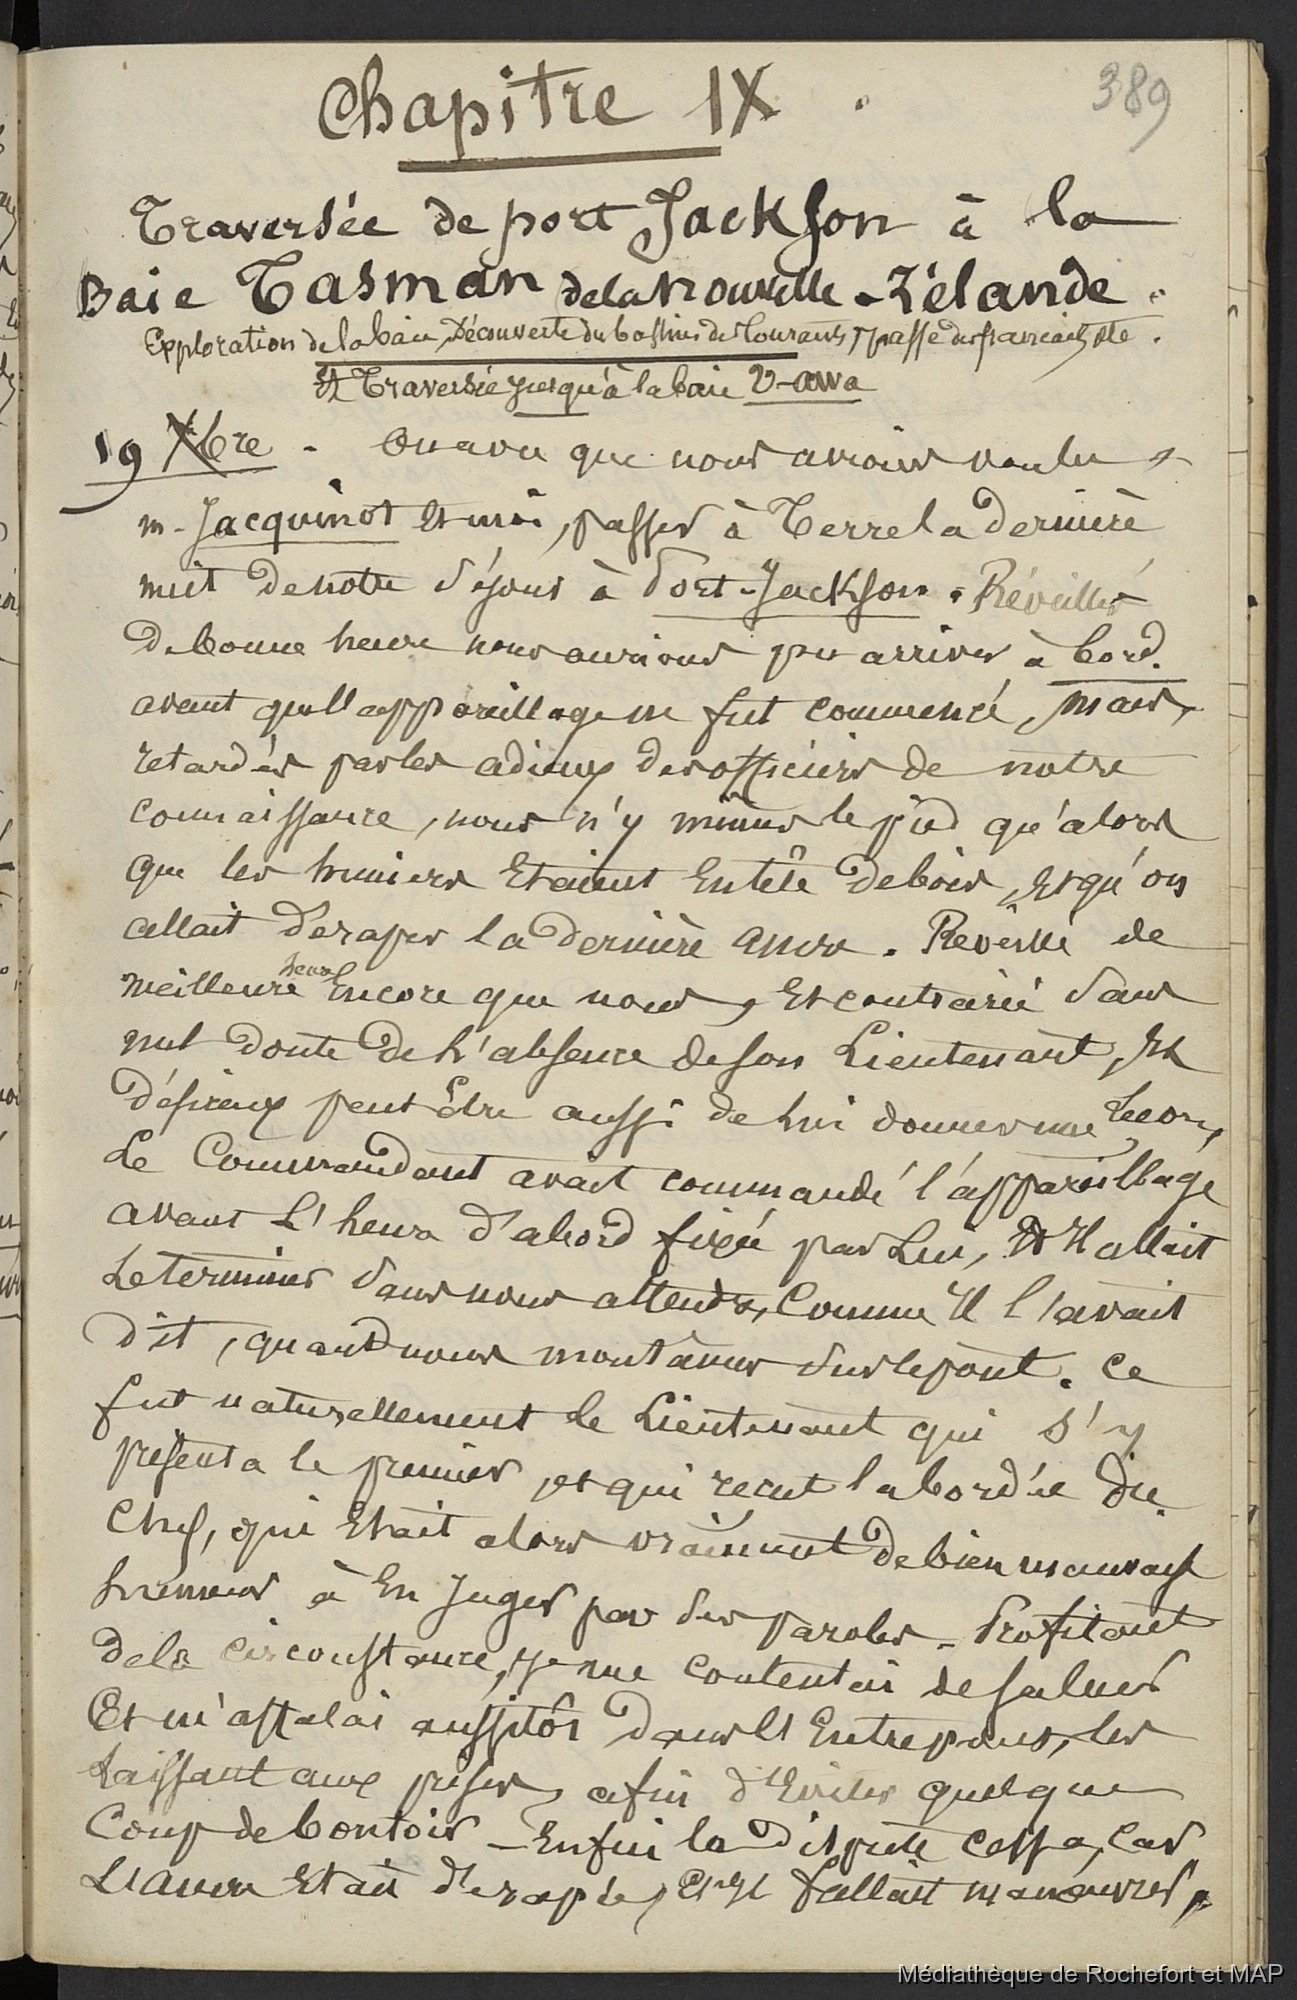 389
Chapitre IX
Traversée de port Jackson à la
Baie Tasman de la Nouvelle-Zélande.
Exploration de la baie, Découverte du bassin des Courants, passe des français, etc.
Et Traversée jusqu'à la baie U-awa
19 Xbre - On a vu que nous avions voulu,
m. Jacquinot et moi, passer à Terre la dernière
nuit de notre séjour à Port-Jackson. Réveillés
de bonne heure nous aurions pu arriver à bord
avant que l'appareillage ne fut commencé, mais,
retardés par les adieux des officiers de notre
connaissance, nous n'y mimes le pied qu'alors
que les huniers Etaient En tête de bois, et qu'on
allait déraper la dernière ancre. Reveillé de
meilleure heure Encore que nous, Et contrarié sans
nul doute de L'absence de son Lieutenant, Et
désireux peut Etre aussi de lui donner une Leçon,
Le Commandant avait commandé l'appareillage
avant L'heure d'abord fixée par Lui, Et Il allait
Le terminer sans nous attendre, Comme Il l'avait
dit, quand nous montâmes sur le pont. Ce
fut naturellement le Lieutenant qui s'y
présenta le premier, et qui reçut la bordée du
Chef, qui Etait alors vraiment de bien mauvaise
humeur à En Juger par ses paroles. Profitant
de la circonstance, je me contentai de saluer
Et m'affalai aussitôt dans l'Entrepont, les
Laissant aux prises, afin d'Eviter quelque
Coup de boutoir - Enfin la dispute cessa, car
L'ancre Etait dérapée, Et Il fallait manœuvrer,
Médiathèque de Rochefort et MAP